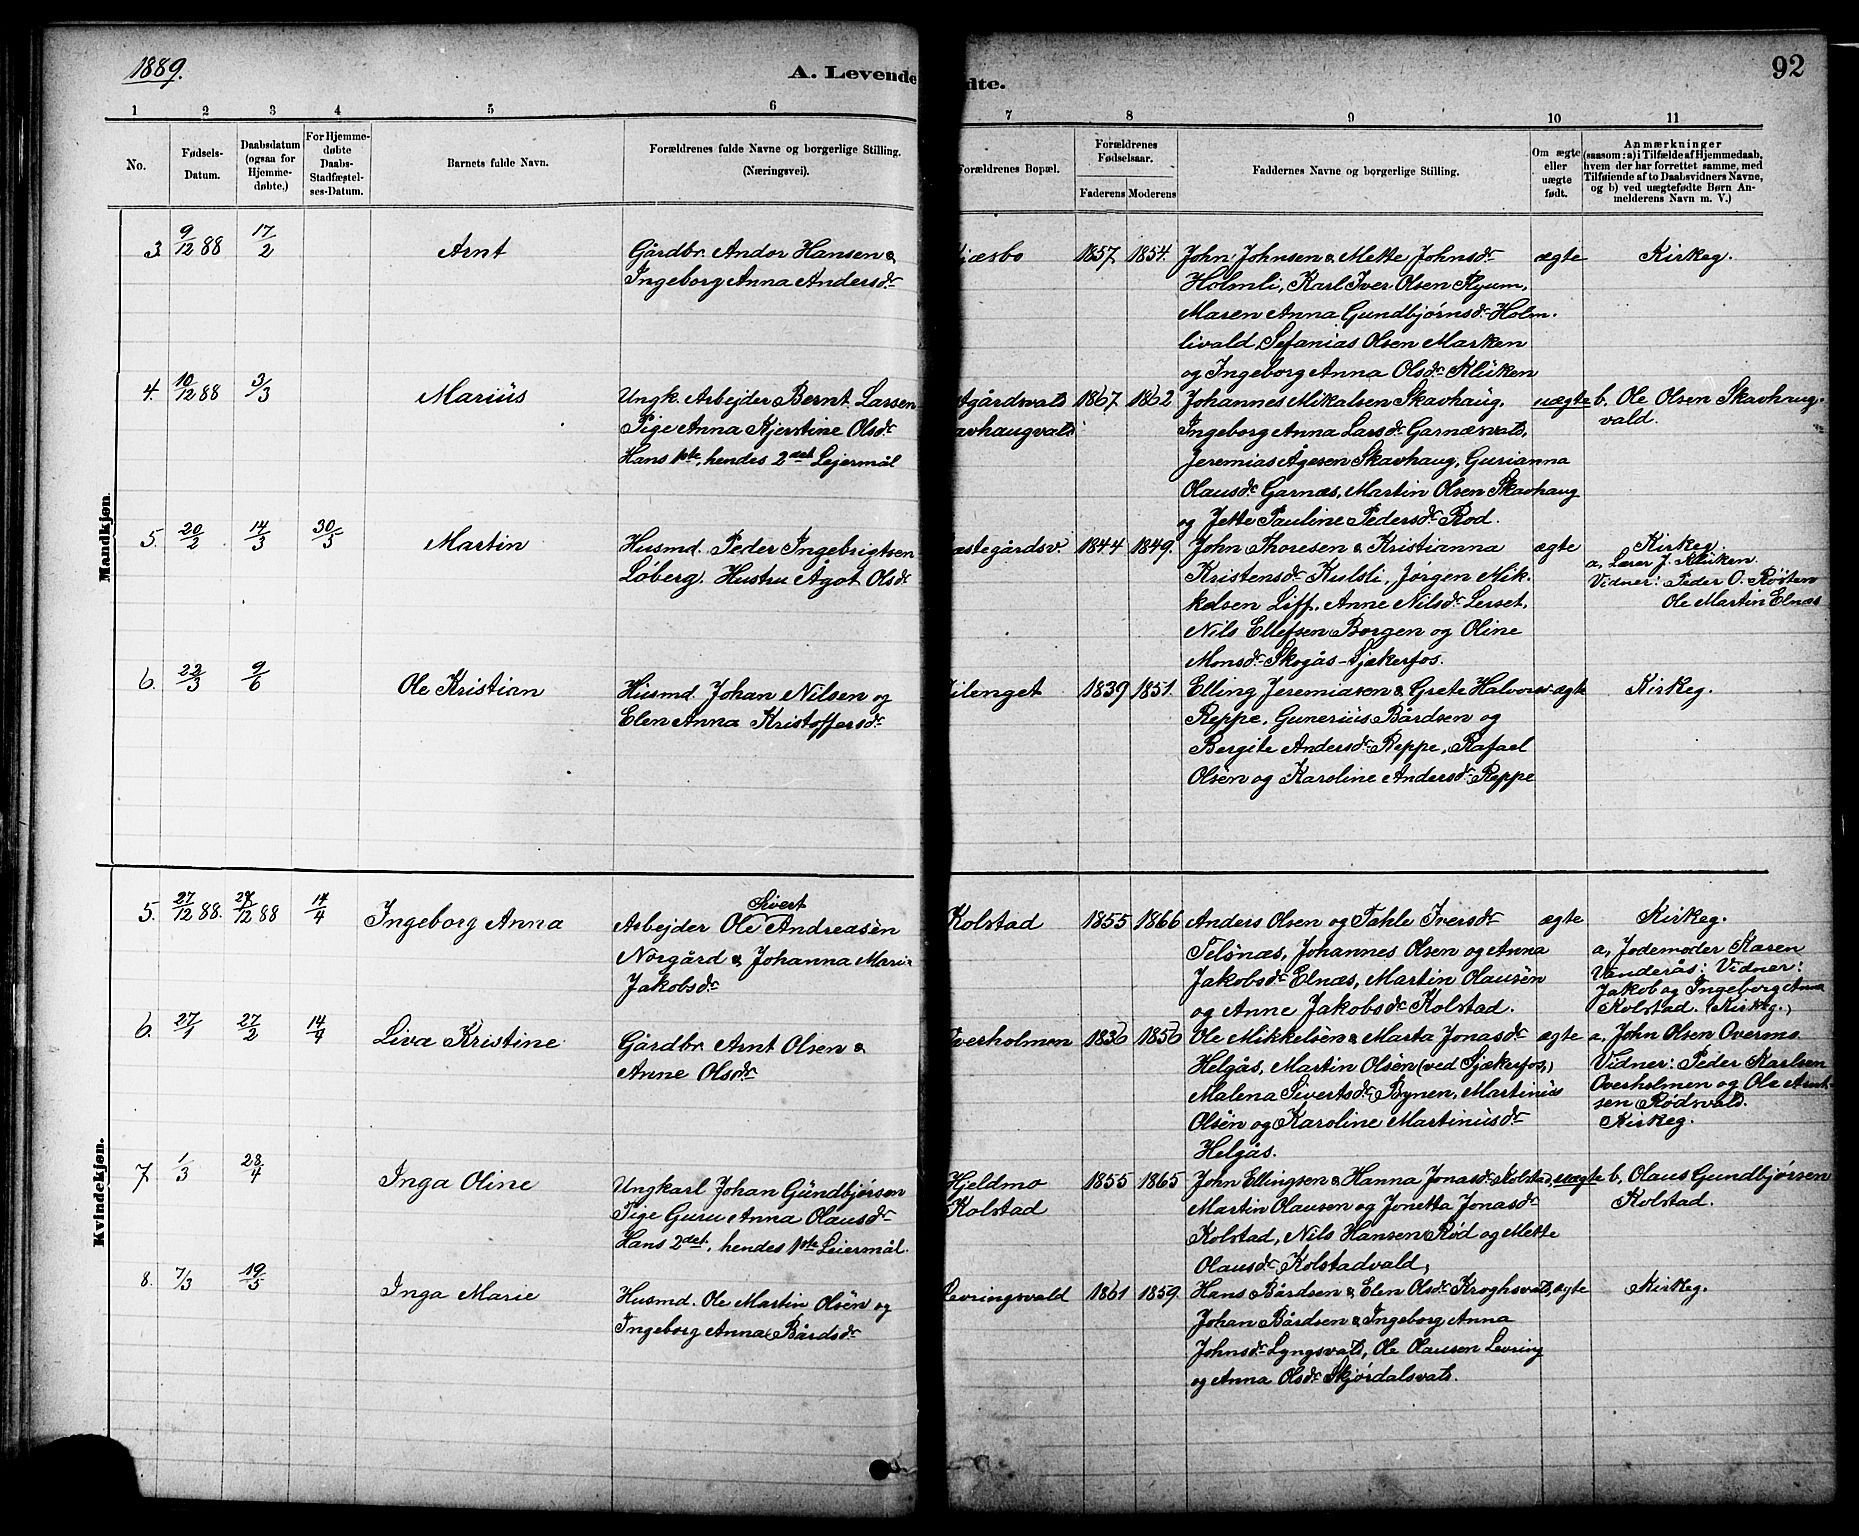 1889.
A. Levende
dte.
92
1 2 3 4 5 6 7 8 9 10 11
No.
Fødsels-
Datum.
Daabsdatum
(ogsaa for
Hjemme-
døbte,)
For Hjemme-
døbte
Daabs-
Stadfæstel-
ses-Datum.
Barnets fulde Navn.
Forældrenes fulde Navne og borgerlige Stilling.
(Næringsvei).
Forældrenes Bopæl.
Forældrenes
Fødselsaar.
Faderens Moderens
Faddernes Navne og borgerlige Stilling.
Om ægte
eller
uægte
født.
Anmærkninger
(saasom: a) i Tilfælde af Hjemmedaab,
hvem der har forrettet samme, med
Tilføiende af to Daabsvidners Navne,
og b) ved uægtefødte Børn An-
melderens Navn m. V.)
Mandkjøn.
3. 9/12 88 17/2 Arnt
Gårdbr. Andor Hansen &
Ingeborg Anna Andersdr
1857 1854.
John Johnsen & Mette Johnsdr
Holmli, Karl Iver Olsen Ryum,
Maren Anna Gundbjørnsdr Holm-
livald Sefanias Olsen Marken
og Ingeborg Anna Olsdr Klüken
ægte Kirkeg.
4. 10/12 88 3/3 Mariüs
Ungk. Arbejder Bernt Larsen
Pige Anna Kjerstine Olsdr
Hans 1ste, hendes 2det Lejermål
tgårdsvald
avhaugvald
1867 1862
Johannes Mikalsen Skavhaug,
Ingeborg Anna Larsdr Garnæsvald,
Jeremias Ågesen Skavhaug, Gurianna
Olausdr Garnæs, Martin Olsen Skavhaug
og Jette Pauline Pedersdr Rod.
uægte b. Ole Olsen Skavhaug-
vald.
5. 20/2 14/3 30/5 Martin
Husmd. Peder Ingebrigtsen
Løberg. Hustru Ågot Olsdr
æstegårdsv. 1844 1849.
John Thoresen & Kristianna
Kristensdr Kulsli, Jørgen Mik-
kelsen Liff, Anne Nilsdr Lesset,
Nils Ellefsen Borgen og Oline
Monsdr Skogås-Sjækerfos.
ægte Kirkeg.
a, Lærer J. Klüken
Vidner: Peder O. Røsten
Ole Martin Elnæs
6. 22/3 9/6 Ole Kristian
Hüsmd. Johan Nilsen og
Elen Anna Kristoffersdr
ilenget 1839 1851.
Elling Jeremiasen & Grete Halvorsdr
Reppe, Gunerius Bårdsen og
Bergite Andersdr Reppe, Rafael
Olsen og Karoline Andersdr Reppe
ægte Kirkeg.
Kvindekjøn.
5. 27/12 88. 27/12 88 14/4 Ingeborg Anna
Sivert
Arbejder Ole Andreasen
Norgård & Johanna Marie
Jakobsdr
Kolstad 1855 1866
Anders Olsen og Tahle Iversdr
Telsnæs, Johannes Olsen og Anna
Jakobsdr Elnæs, Martin Olausen
og Anne Jakobsdr Kolstad.
ægte Kirkeg.
a, Jodemoder Karen
Vanderås: Vidner:
Jakob og Ingeborg Anna
Kolstad. (Kirkeg.)
6. 27/1 27/2 14/4 Liva Kristine
Gårdbr. Arnt Olsen &
Anne Olsdr
verholmen 1836 1856
Ole Mikkelsen & Marta Jonasdr
Helgås, Martin Olsen (ved Sjækerfos,)
Malena Sivertsdr Bynen, Martinius
Olsen og Karoline Martinusdr
Helgås.
ægte a, John Olsen Overmo.
Vidner: Peder Karlsen
Overholmen og Ole Arnt-
sen Rødsvald.
Kirkeg.
7 1/3 28/4 Inga Oline
Ungkarl Johan Gündbjørsen
Pige Guru Anna Olausdr
Hans 2det, hendes 1ste Leiermål.
Hjeldmo
Kolstad
1855 1865
John Ellingsen & Hanna Jonasdr Kolstad,
Martin Olausen og Jonetta Jonasdr
Kolstad, Nils Hansen Rød og Mette
Olausdr Kolstadvald,
uægte b, Olaus Gundbjørsen
Kolstad.
8. 7/3 19/5 Inga Marie
Husmd. Ole Martin Olsen og
Ingeborg Anna Bårdsdr
Levringsvald 1861 1859.
Hans Bårdsen & Elen Olsdr Kroghsvald,
Johan Bårdsen & Ingeborg Anna
Johnsdr Lyngsvald, Ole Olausen Levring
og Anna Olsdr Skjørdalsvald.
ægte Kirkeg.